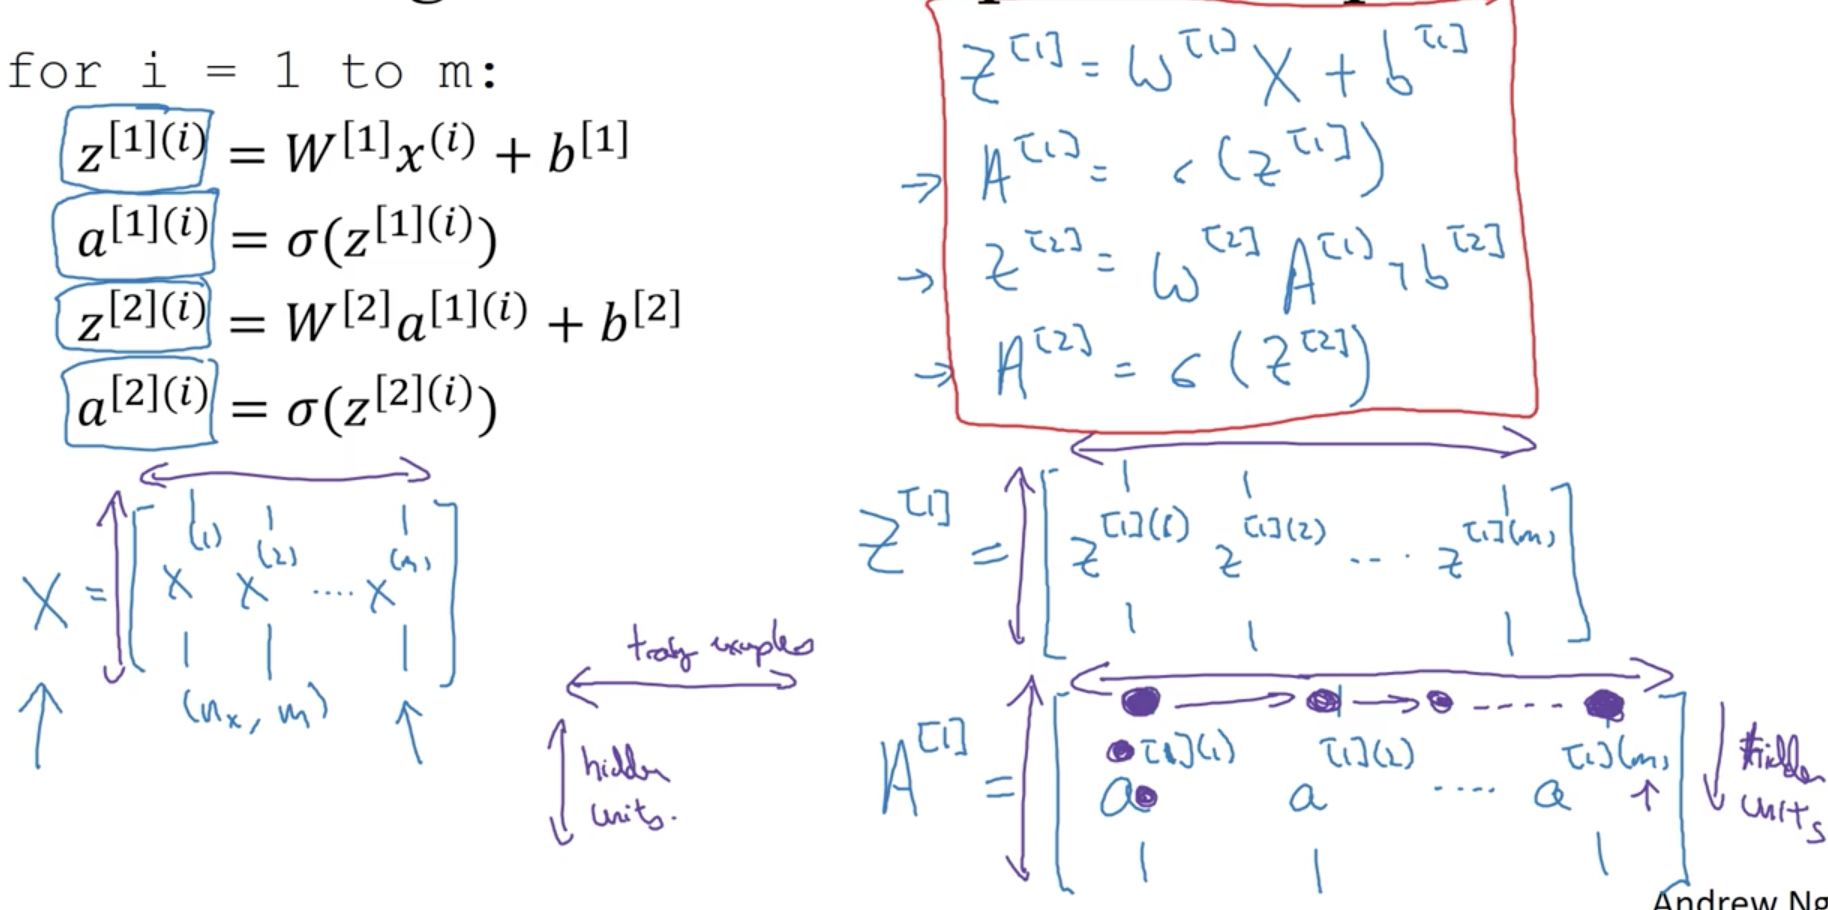 for i = 1 to m:
z^{[1](i)} = W^{[1]}x^{(i)} + b^{[1]}
a^{[1](i)} = σ(z^{[1](i)})
z^{[2](i)} = W^{[2]}a^{[1](i)} + b^{[2]}
a^{[2](i)} = σ(z^{[2](i)})
Z^{[1]} = W^{[1]} X + b^{[1]}
→ A^{[1]} = σ(Z^{[1]})
→ Z^{[2]} = W^{[2]} A^{[1]} + b^{[2]}
→ A^{[2]} = σ(Z^{[2]})
X = [x^{(1)} x^{(2)} .... x^{(m)}]
(n_x, m)
hidden
units.
Z^{[1]} = [z^{[1](1)} z^{[1](2)} .... z^{[1](m)}]
A^{[1]} = [a^{[1](1)} a^{[1](2)} .... a^{[1](m)}]
hidden
units
Andrew Ng